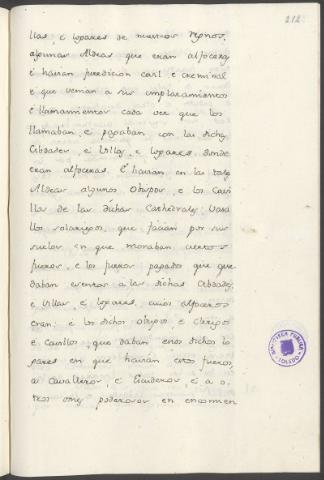 212
llas, é logares de nuestros regnos,
algunas Aldeas que eran alfoceras
é havian juredicion cevil e creminal
é que venian a sus emplazamientos
é llamamientos cada ves que los
llamaban, e pagaban con las dichas
Cibdades e Villas e logares, donde
eran alfoceras. E havian en las tales
Aldeas algunos Obispos, e los Cavi
llos de las dichas Cathedrales Vasa
llos solariegos, que facian por sus
suelos en que moraban ciertos
fueros, e los fueros pagados que que
daban esentos a las dichas Cibdades,
e Villas, e logares, cuios alfoceros
eran: e los dichos obispos, e Clerigos
e Cavillos, que daban enos dichos lo
gares en que havian estos fueros,
a Cavalleros, e Escuderos, e a o
tros omes poderosos en encomien
BIBLIOTECA PUBLICA
TOLEDO